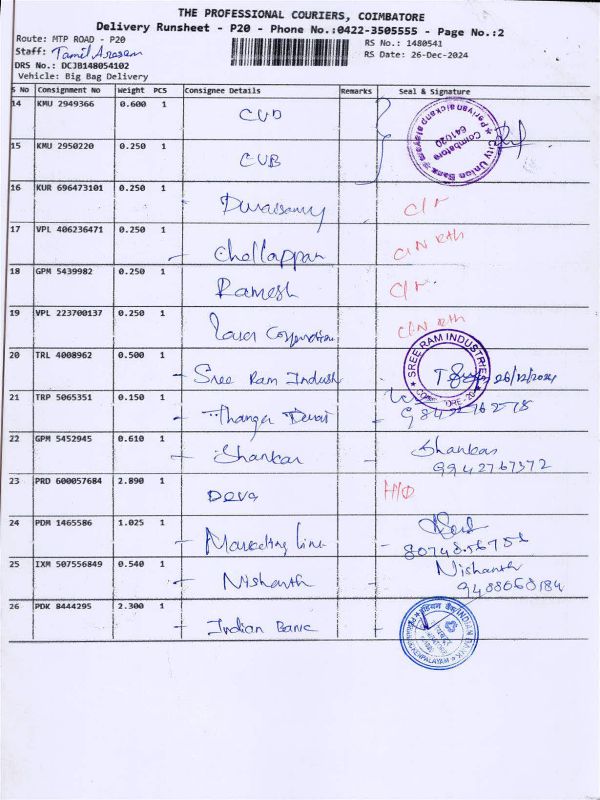 THE PROFESSIONAL COURIERS, COIMBATORE
Delivery Runsheet - P20 - Phone No.:0422-3505555 - Page No.:2
Route: MTP ROAD - P20
RS No.: 1480541
Staff: Tamil Arasan
RS Date: 26-Dec-2024
DRS No.: DCJB148054102
Vehicle: Big Bag Delivery
S No Consignment No Weight PCS Consignee Details Remarks Seal & Signature
14 KMU 2949366 0.600 1 CUB
City Union Bank Periyanaickenpalayam Coimbatore 641020
15 KMU 2950220 0.250 1 CUB
16 KUR 696473101 0.250 1 Duraisamy
17 VPL 406236471 0.250 1 Chellappan
18 GPM 5439982 0.250 1 Ramesh
19 VPL 223700137 0.250 1 Corporation
20 TRL 4008962 0.500 1 Sree Ram Indust
SREE RAM INDUSTRIE
26/12/2024
21 TRP 5065351 0.150 1
22 GPM 5452945 0.610 1 Shankar Shankar
9942767372
23 PRD 600057684 2.890 1 Deva H/O
24 PDM 1465586 1.025 1 Marketing line
8074856756
25 IXM 507556849 0.540 1 Nishanth Nishanth
9488068184
26 PDK 8444295 2.300 1 Indian Bank
INDIAN BANK